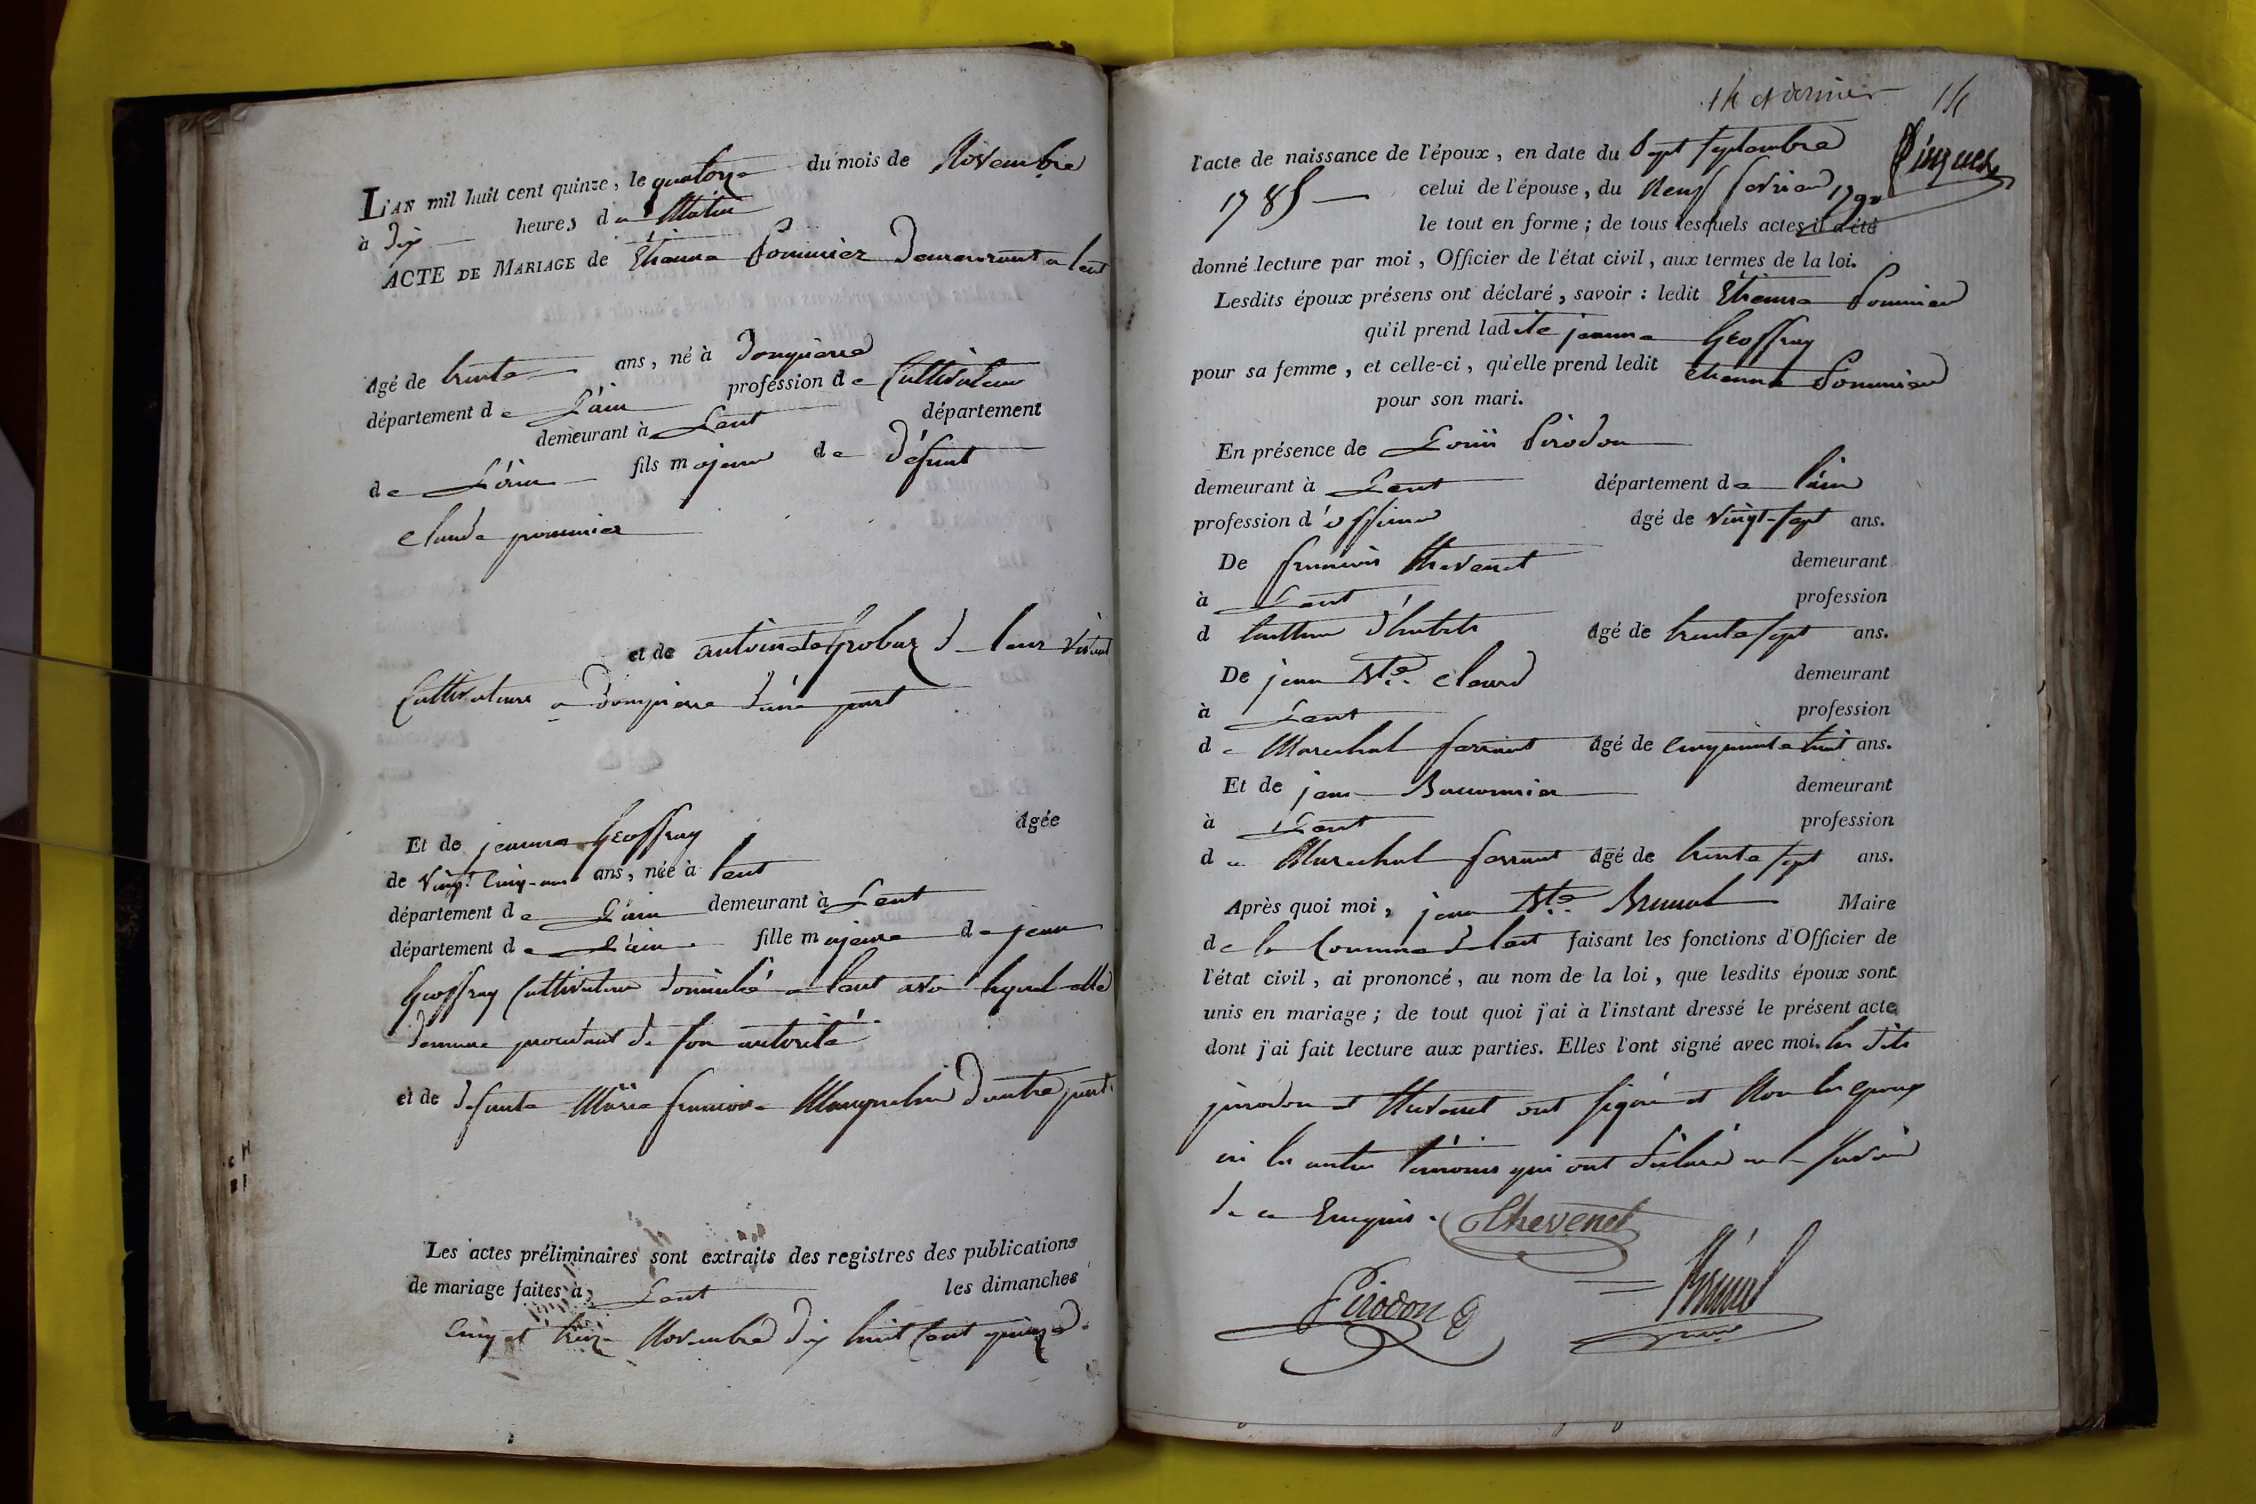 L'AN mil huit cent quinze, le quatorze du mois de Novembre
à dix heures du Matin
ACTE DE MARIAGE de Etienne Pommier demeurant a lent
âgé de trente ans, né à dompierre
département de L'ain profession de Cultivateur
demeurant à Lent département
de L'ain fils majeur de défunt
Claude pommier
et de antoinette Grobaz de leur vivant
Cultivateurs a dompierre d'une part
Et de jeanne Geoffray âgée
de vingt cinq ans ans, née à lent
département de L'ain demeurant à Lent
département de L'ain fille majeure de jean
Geoffray Cultivateur domicilié a lent avec lequel elle
demeure procédant de son autorité
et de defunte Marie françoise d'autre part.
Les actes préliminaires sont extraits des registres des publications
de mariage faites à Lent les dimanches
cinq et Novembre dix huit cent quinze.
14 et dernier 14
l'acte de naissance de l'époux, en date du Sept Septembre
1785 celui de l'épouse, du Neuf fevrier 1790
le tout en forme; de tous lesquels actes il a été
donné lecture par moi, Officier de l'état civil, aux termes de la loi.
Lesdits époux présens ont déclaré, savoir : ledit Etienne Pommier
qu'il prend ladite jeanne Geoffray
pour sa femme, et celle-ci, qu'elle prend ledit Etienne Pommier
pour son mari.
En présence de Louis Pirodon
demeurant à Lent département de L'ain
profession d' âgé de vingt-sept ans.
De françois Thevenet demeurant
à Lent profession
d âgé de trente sept ans.
De jean Bte. Claud demeurant
à Lent profession
de Marechal ferrant âgé de cinquante huit ans.
Et de jean demeurant
à Lent profession
de Marechal ferrant âgé de trente sept ans.
Après quoi moi, jean Bte. Maire
de la Commune de lent faisant les fonctions d'Officier de
l'état civil, ai prononcé, au nom de la loi, que lesdits époux sont
unis en mariage; de tout quoi j'ai à l'instant dressé le présent acte
dont j'ai fait lecture aux parties. Elles l'ont signé avec moi. les dits
pirodon et thevenet ont signé et Non les epoux
ni les autres témoins qui ont déclaré ne le savoir
de ce Enquis. Thevenet
Pirodon